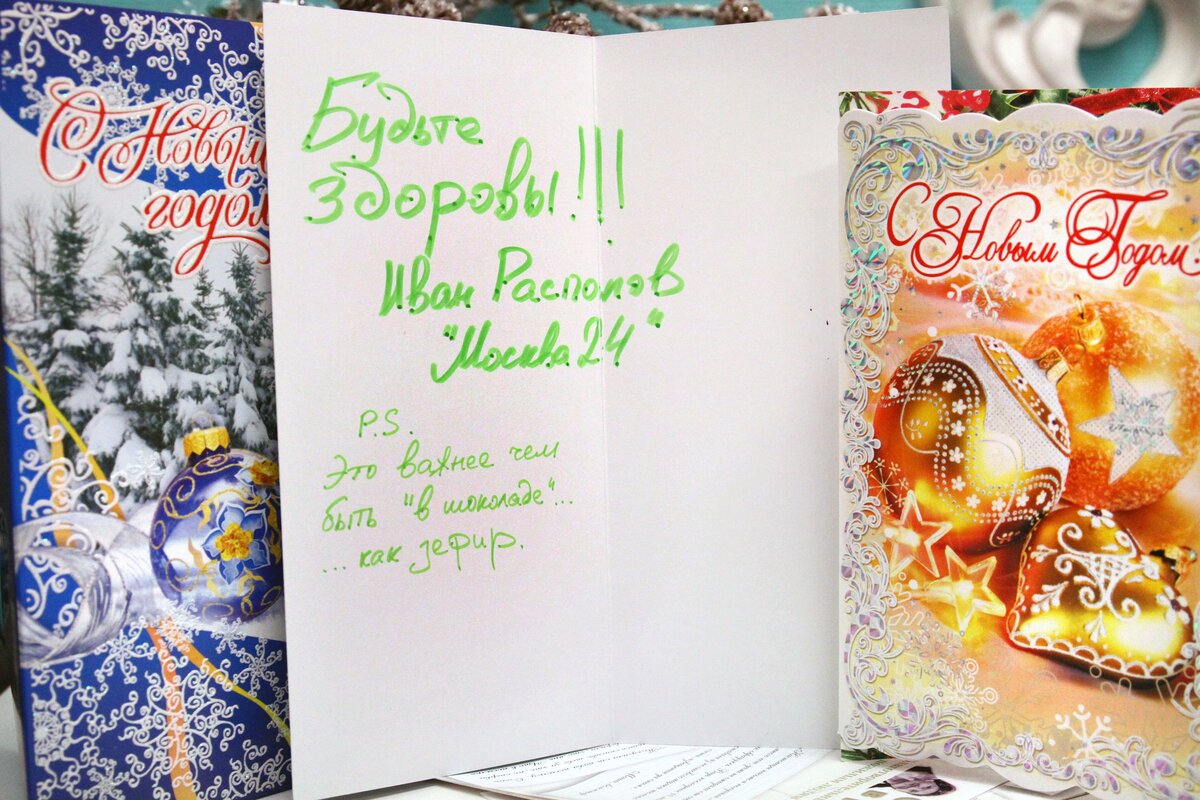 С Новым
годом
Будьте
здоровы!!!
Иван Распопов
"Москва 24"
P.S.
Это важнее чем
быть "в шоколаде"...
... как зефир.
С Новым Годом